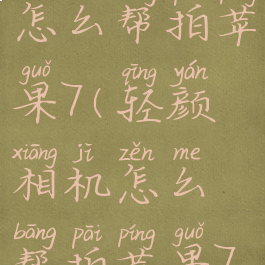 怎么帮拍苹
guǒ qīng yán
果7(轻颜
xiāng jī zěn me
相机怎么
bāng pāi píng guǒ
帮拍苹果7